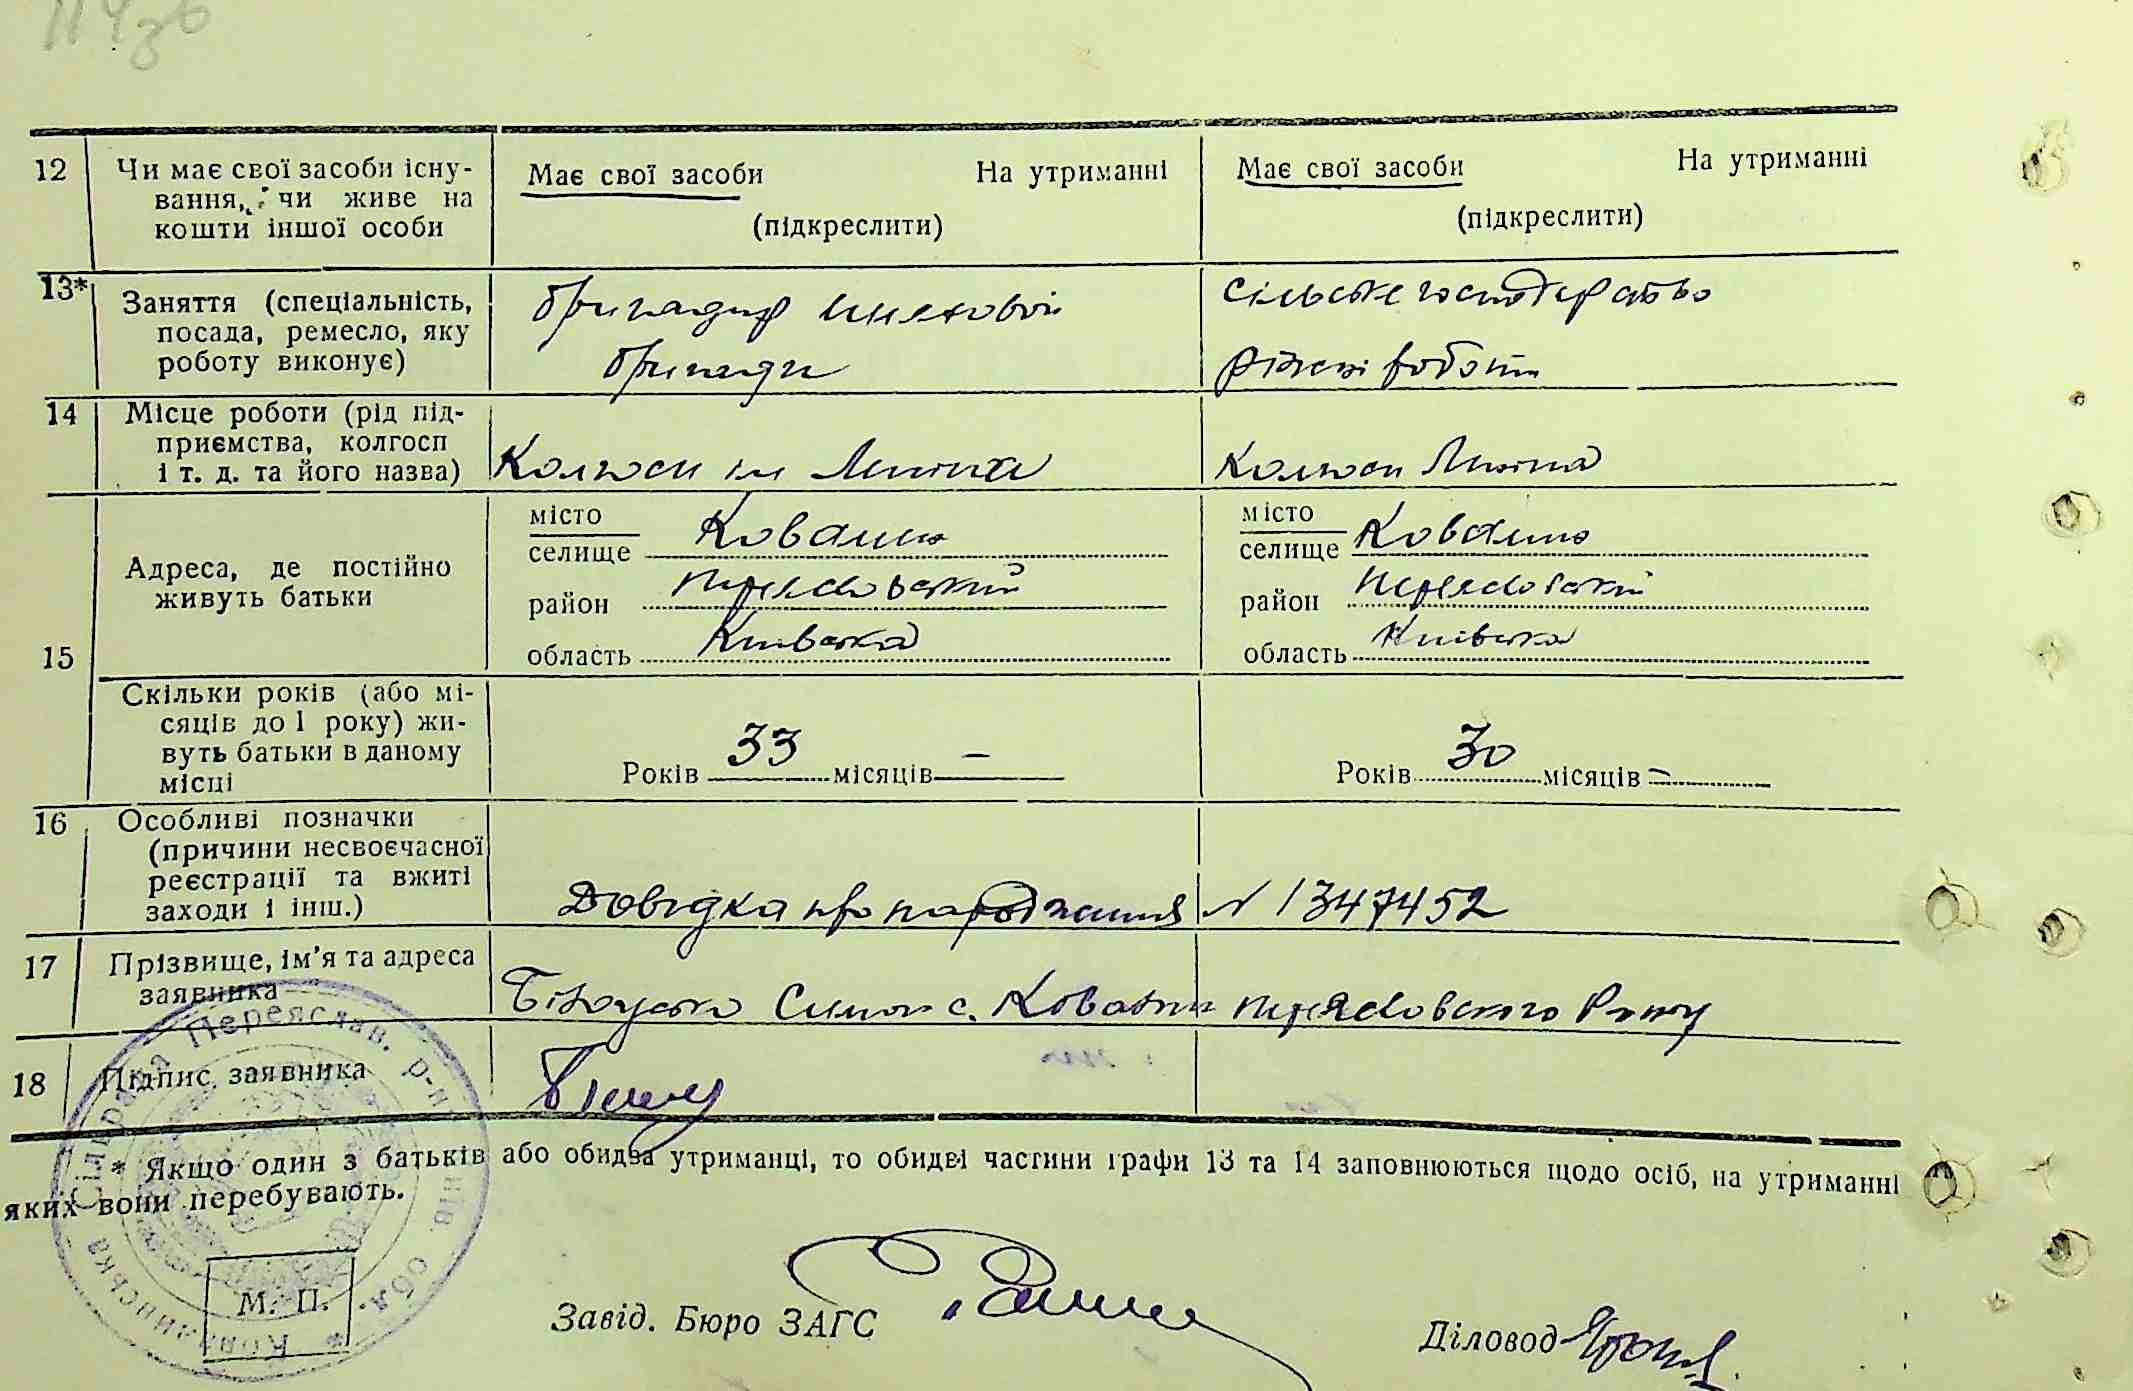 12 Чи має свої засоби існу- Має свої засоби На утриманні Має свої засоби На утриманні
вання, чи живе на
кошти іншої особи (підкреслити) (підкреслити)
13* Заняття (спеціальність, бригадир сільське господарство
посада, ремесло, яку
роботу виконує) бригади різні роботи
14 Місце роботи (рід під-
приємства, колгосп
і т. д. та його назва) Колгосп ім Леніна Колгосп Леніна
місто місто
селище Ковалин селище Ковалин
Адреса, де постійно
живуть батьки
район Переяславський район Переяславський
15 область Київська область Київська
Скільки років (або мі-
сяців до 1 року) жи-
вуть батьки в даному
місці
Років 33 місяців – Років 30 місяців –
16 Особливі позначки
(причини несвоєчасної
реєстрації та вжиті
заходи і інш.) Довідка про народження N 1347452
17 Прізвище, ім'я та адреса
заявника Симон с. Ковалин Переясловского
18 Підпис заявника
* Якщо один з батьків або обидва утриманці, то обидві частини графи 13 та 14 заповнюються щодо осіб, на утриманні
яких вони перебувають.
Ковалинська Сільрада Переяслав. р-н обл.
М. П.
Завід. Бюро ЗАГС
Діловод